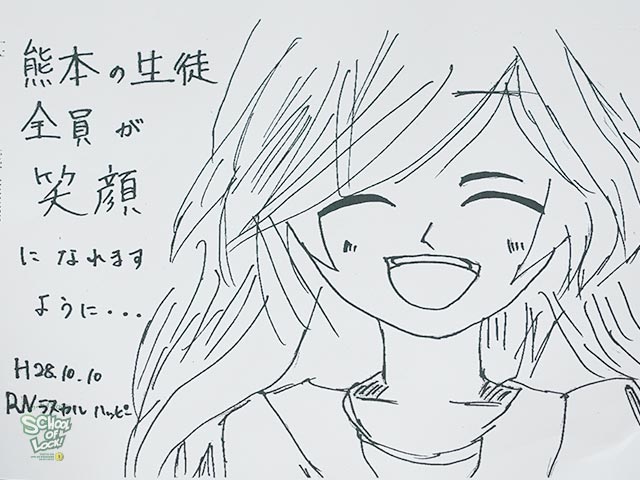 熊本の生徒
全員が
笑顔
になれます
ように・・・
H28.10.10
RN ラスカル ハッピー
SCHOOL OF LOCK!